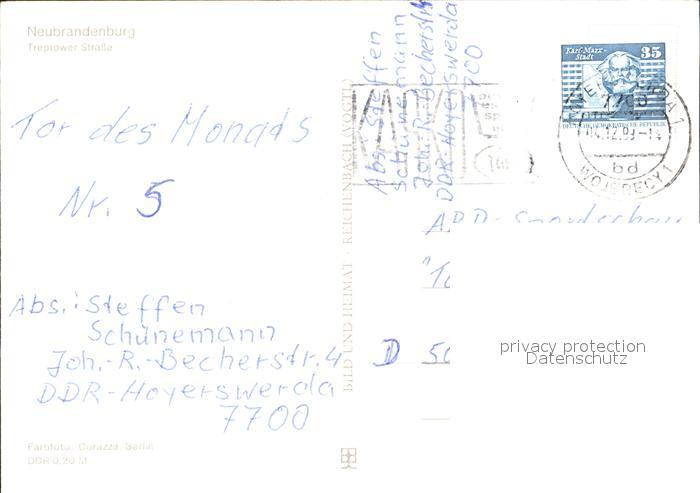 Neubrandenburg
Treptower Straße
Tor des Monats
Nr. 5
Abs.: Steffen
Schünemann
Joh.-R.-Becherstr. 4
DDR-Hoyerswerda
7700
Farbfoto: Darazza, Berlin
DDR 0,20 M
BILD UND HEIMAT · REICHENBACH (VOGTL)
Abs. Steffen
Schünemann
Joh.-R.-Becherstr
DDR-Hoyerswerda
7700
Karl-Marx-
Stadt
35
DEUTSCHE DEMOKRATISCHE REPUBLIK
7700
bd
WOJERECY 1
ARD-
D 50
privacy protection
Datenschutz